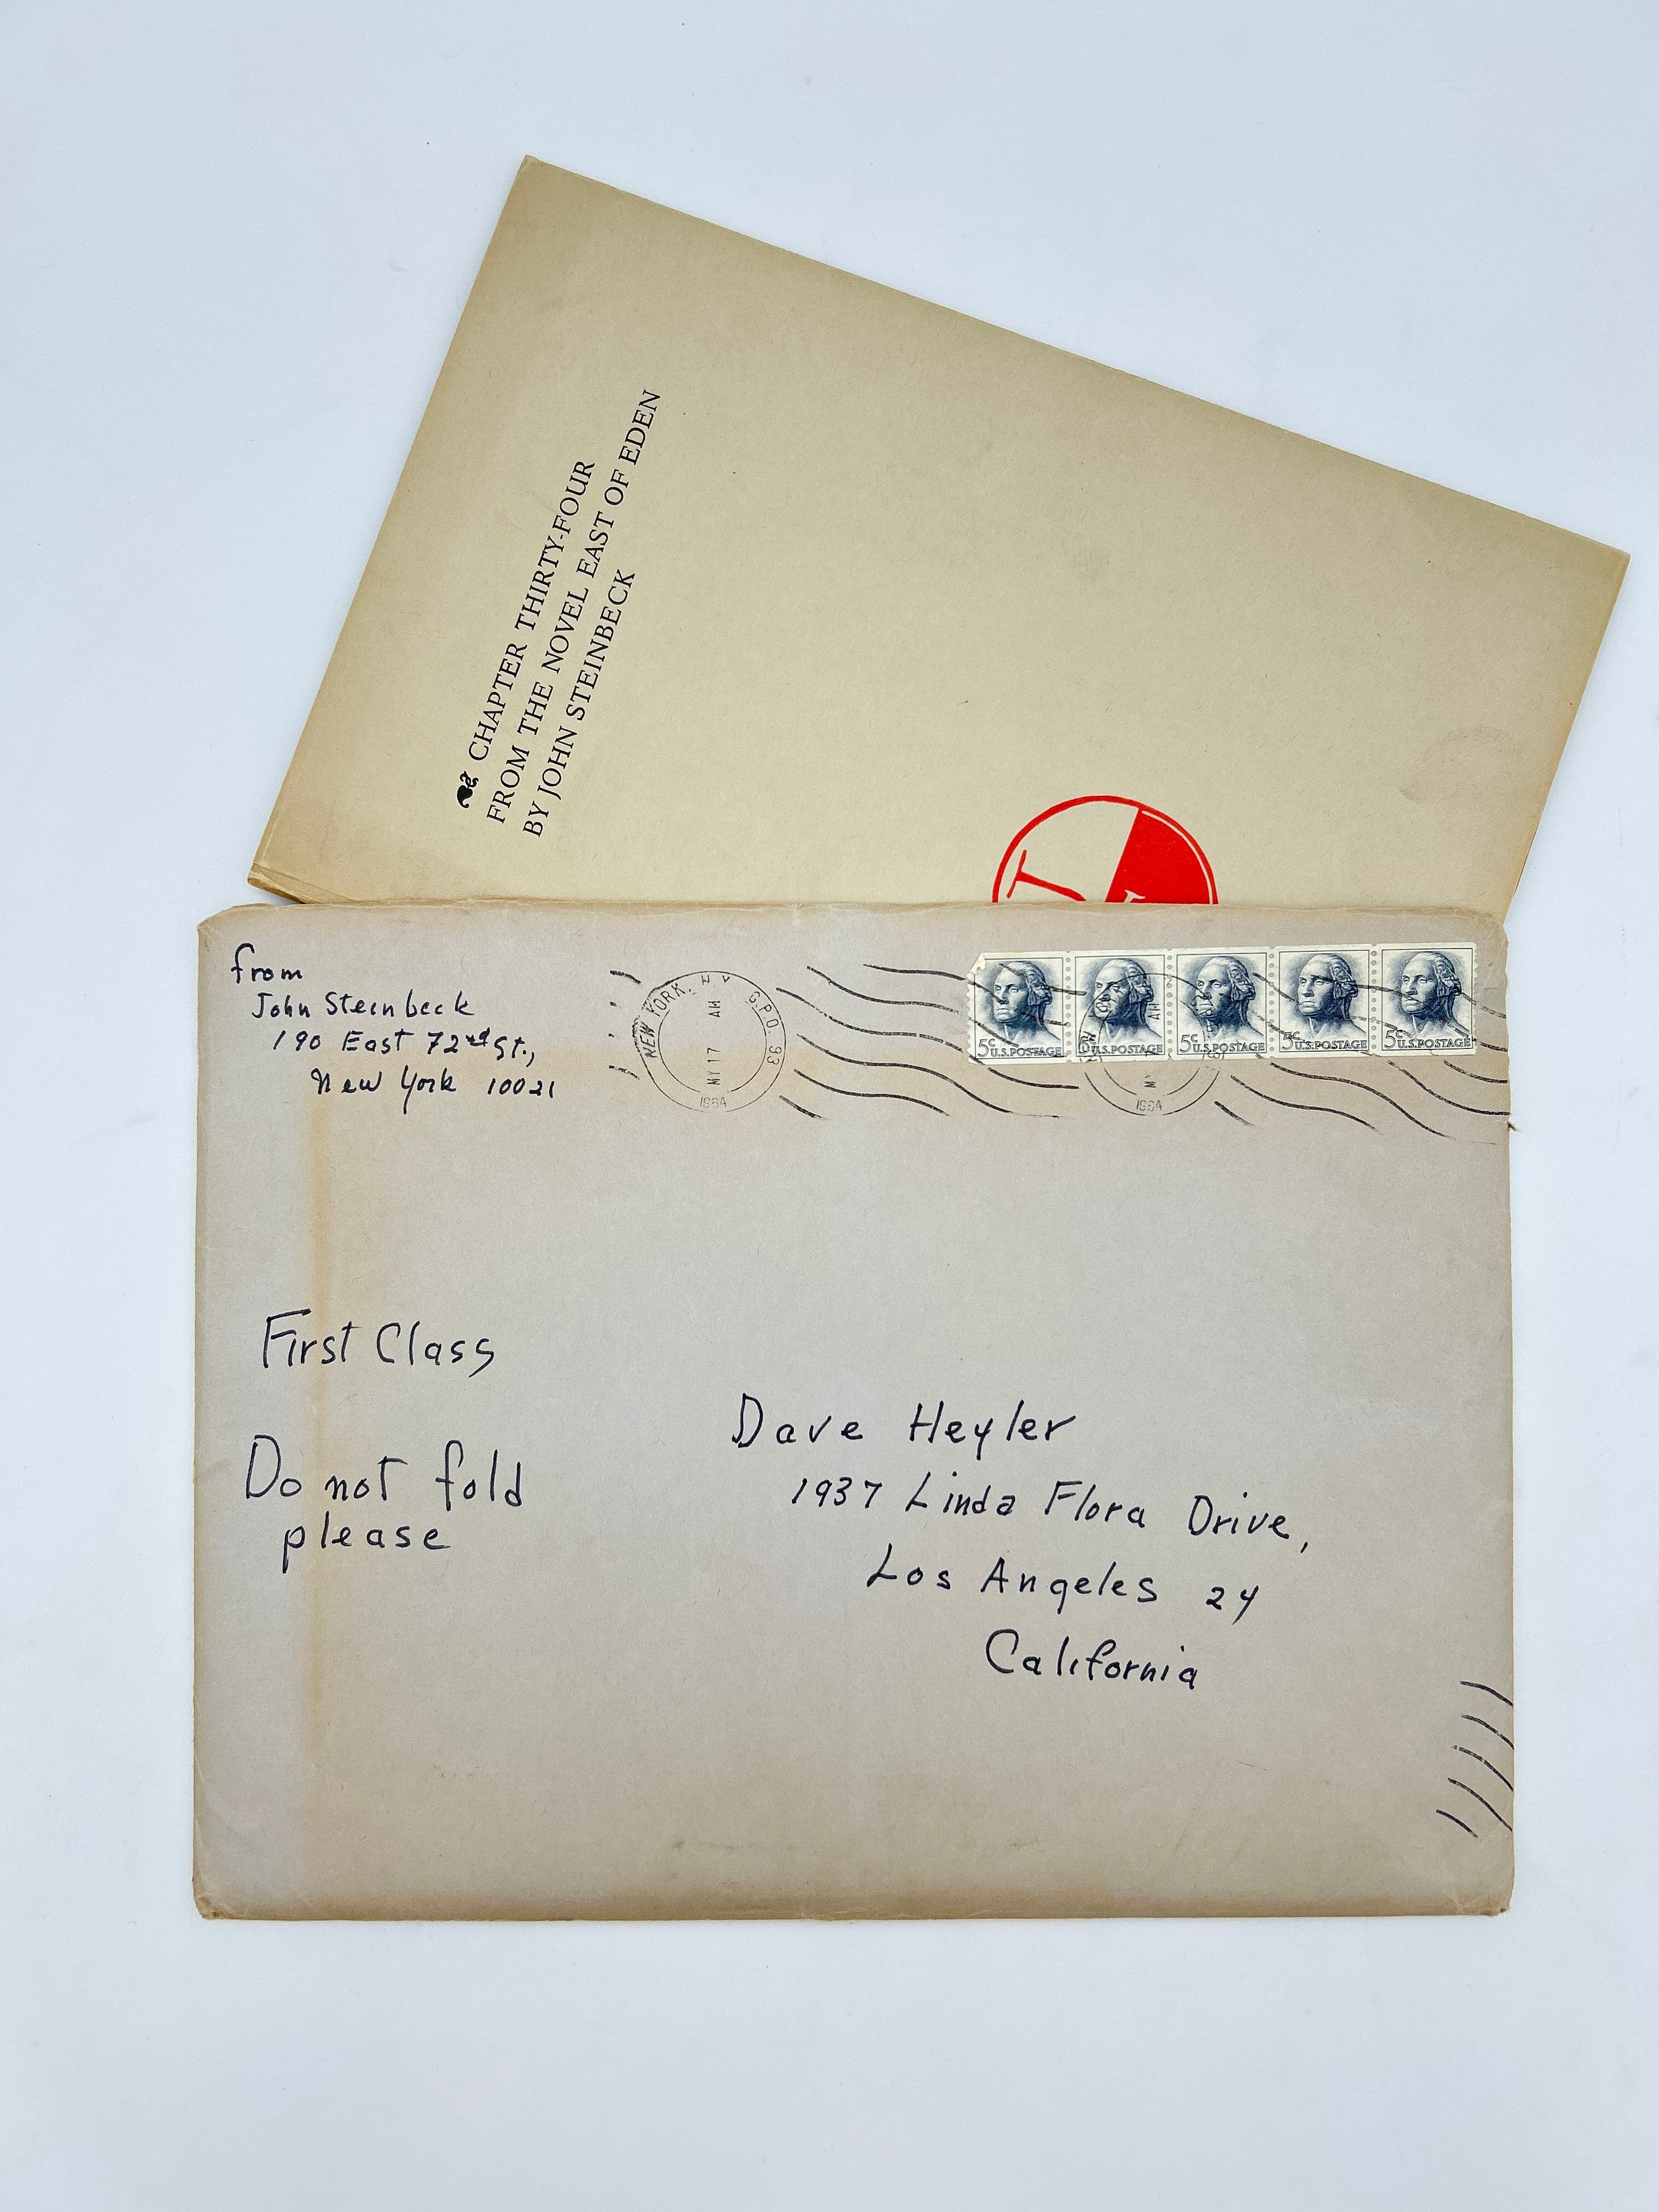 CHAPTER THIRTY-FOUR
FROM THE NOVEL EAST OF EDEN
BY JOHN STEINBECK
from
John Steinbeck
190 East 72nd St.,
New York 10021
NEW YORK, N Y G.P.O. 93
MY 17 AM
1964
5c U.S.POSTAGE
5c U.S.POSTAGE
5c U.S.POSTAGE
5c U.S.POSTAGE
5c U.S.POSTAGE
1964
First Class
Do not fold
please
Dave Heyler
1937 Linda Flora Drive,
Los Angeles 24
California